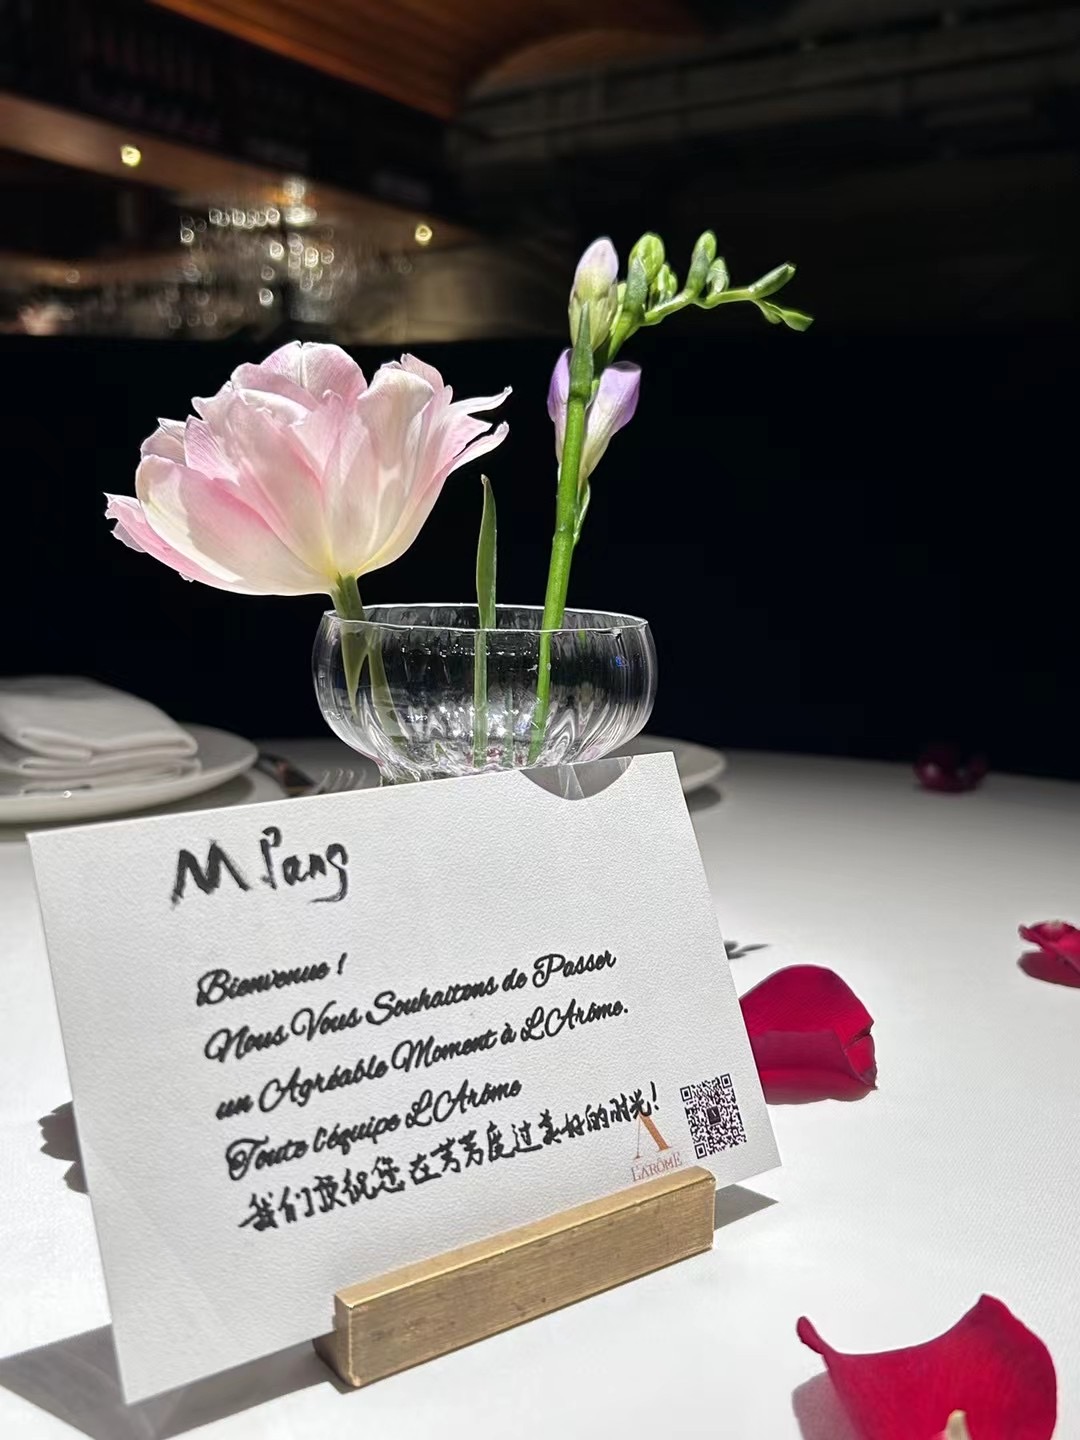 M Pang
Bienvenue !
Nous Vous Souhaitons de Passer
un Agréable Moment à L'Arôme.
Toute l'équipe L'Arôme
我们预祝您在芳芳度过美好的时光!
L'ARÔME